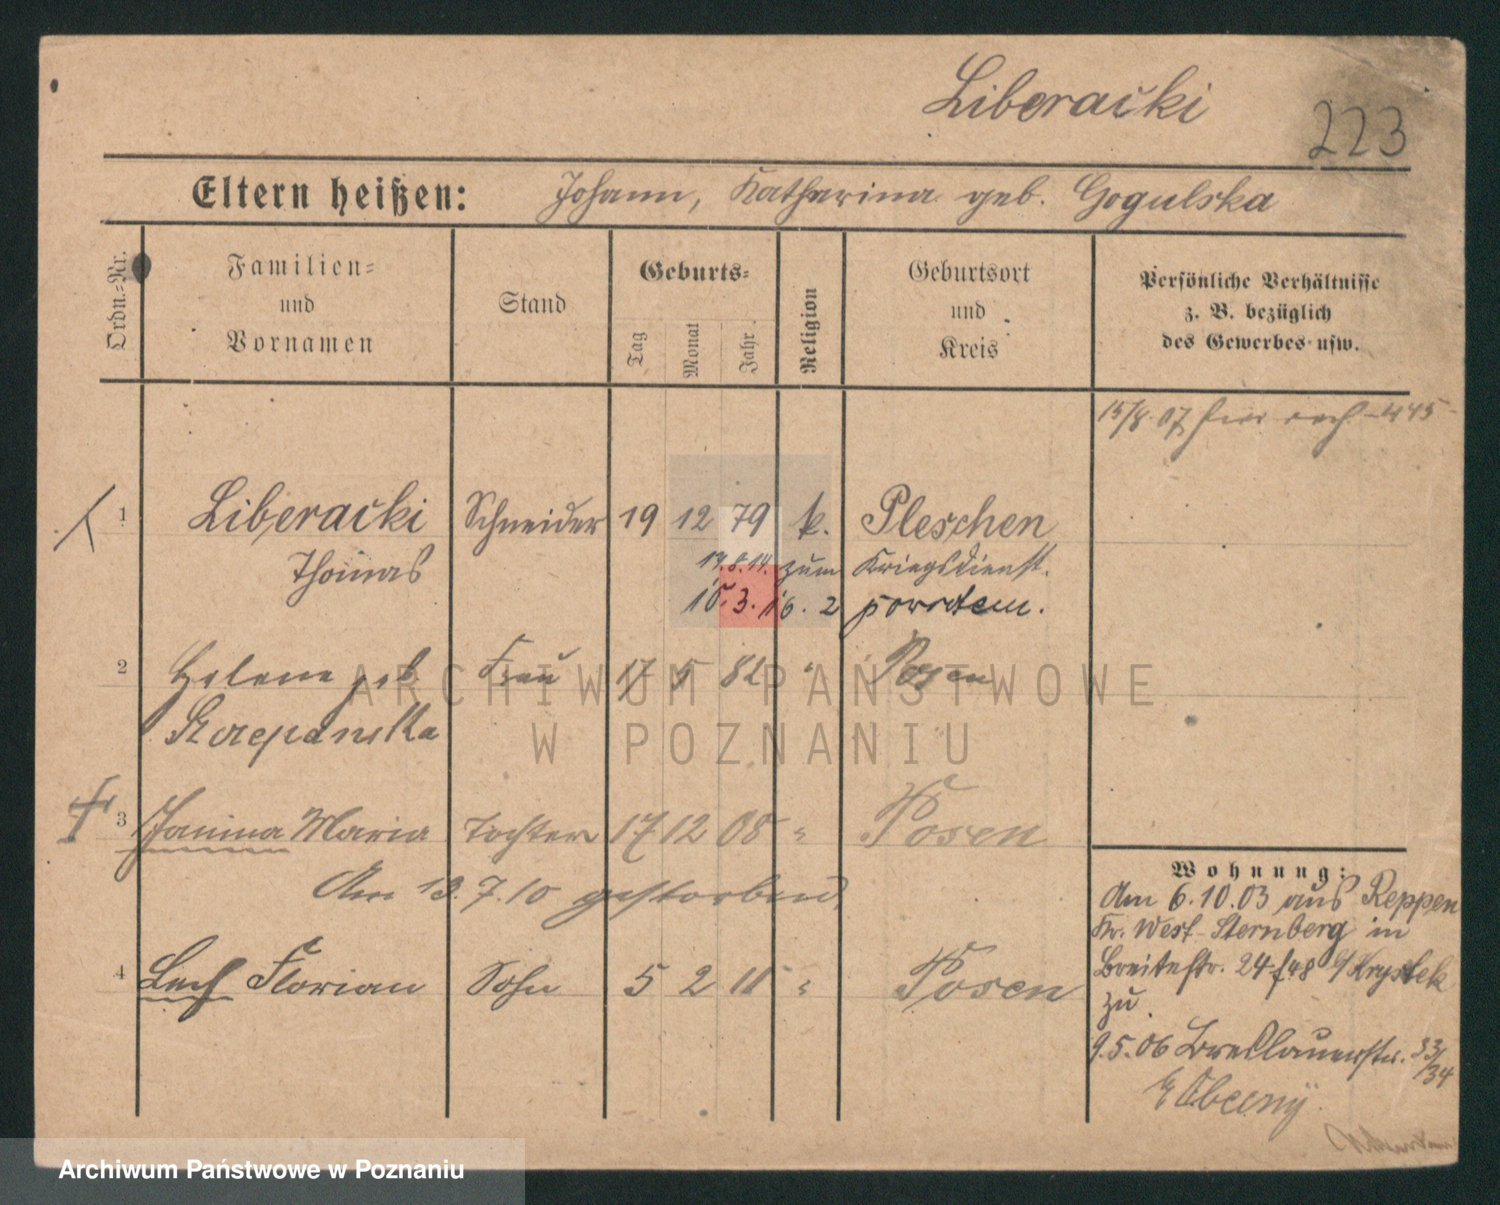 Liberacki
223
Eltern heißen: Johann, Katharina geb. Gogulska
Ordn.-Nr.
Familien-
und
Vornamen
Stand
Geburts-
Tag
Monat
Jahr
Religion
Geburtsort
und
Kreis
Persönliche Verhältnisse
z. B. bezüglich
des Gewerbes usw.
15/8. 07
1 Liberacki Schneider 19 12 79 k. Pleschen
Thomas
17.8.14. zum Kriegsdienst.
2 Helene geb. Frau 17 5 82 " Posen
3 Janina Maria Tochter 17 12 08 " Posen
Am 13.7.10 gestorben
4 Lech Florian Sohn 5 2 11 " Posen
Wohnung:
Am 6.10.03 aus Reppen
Kr. West-Sternberg in
Breitestr. 24 b/ Krystek
zu
9.5.06 Breslauerstr. 33/34
ARCHIWUM PAŃSTWOWE
W POZNANIU
Archiwum Państwowe w Poznaniu